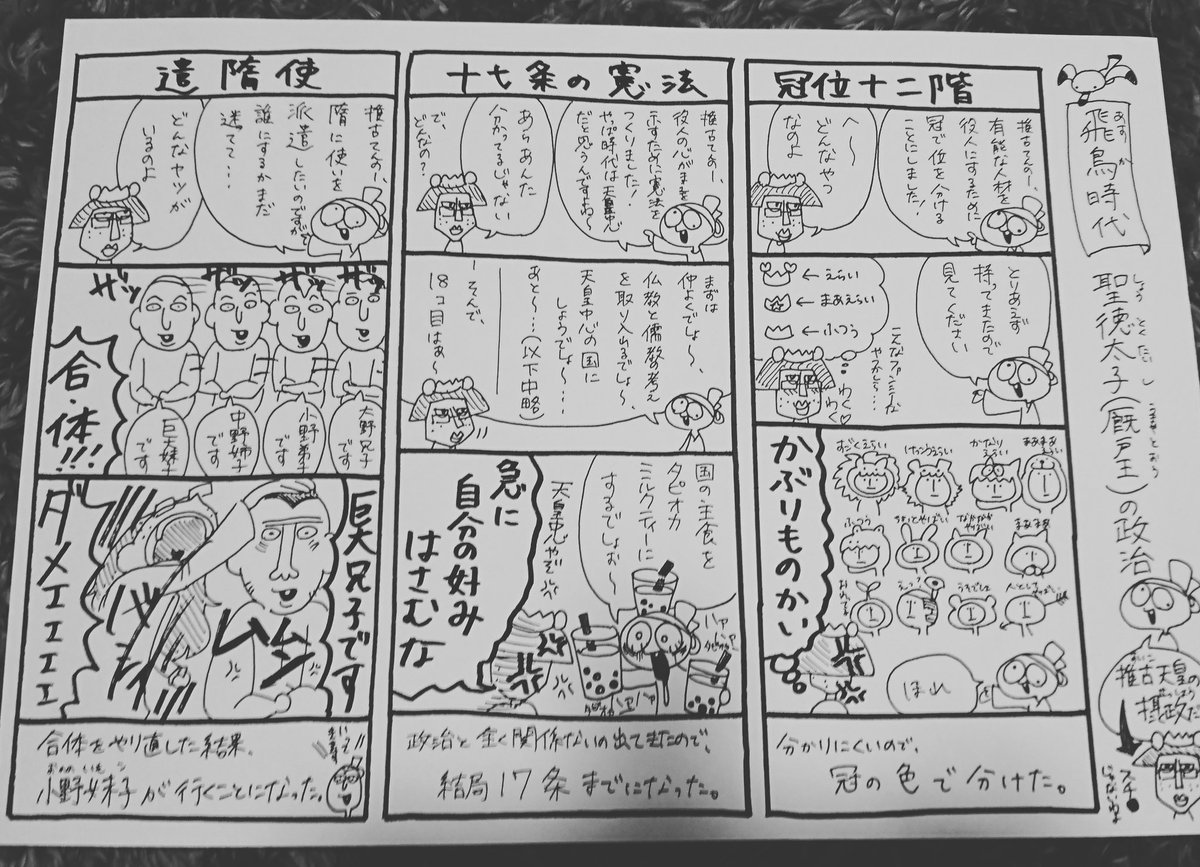 あすか
飛鳥時代
しょう とく たいし
聖徳太子(厩戸王)の政治
推古天皇の
摂政だ
冠位十二階
推古てんのー、
有能な人材を
役人にするために
冠で位を分ける
ことにしました!
へ〜
どんなやつ
なのよ
とりあえず
持ってきたので
見てください
←えらい
←まあえらい
←ふつう
こんなファンシーな
やつかしら…
わくわく
まあまあ
えらい
かなり
えらい
けっこうえらい
すごくえらい
まあまあ
ちょっとやばい
ふつう
かぶりものかい
ほれ
分かりにくいので、
冠の色で分けた。
十七条の憲法
推古てんのー、
役人の心がまえを
示すために憲法を
つくりました!
やっぱ時代は天皇中心
だと思うんですよね〜
あらあんた
分かってるじゃない
で、
どんなの?
まずは
仲よくでしょ〜、
仏教と儒教の考え
を取り入れるでしょ〜、
天皇中心の国に
しょうでしょ〜…
あと〜…(以下中略)
…そんで、
18コ目はぁ〜
国の主食を
タピオカ
ミルクティーに
するでしょお〜
天皇中心やぞ
ハァ
ハァ
急に
自分の好み
はさむな
政治と全く関係ないの出てきたので、
結局17条までになった。
遣隋使
推古てんのー、
隋に使いを
派遣したいのですが
誰にするかまだ
迷てて…
どんなヤツが
いるのよ
ザッ
ザッ
ザッ
ザッ
大野兄子
です
小野弟子
です
中野姉子
です
巨大妹子
です
合・体!!!
巨大兄子です
ダメェェェェ
合体をやり直した結果、
おの の いも こ
小野妹子が行くことになった。